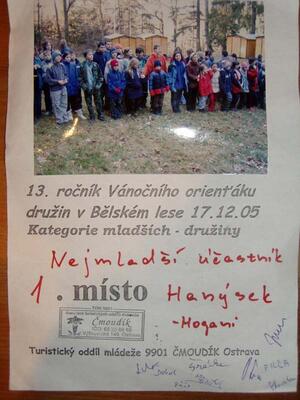 13. ročník Vánočního orienťáku
družin v Bělském lese 17.12.05
Kategorie mladších - družiny
Nejmladší účastník
1. místo Hanýsek
-Mogani
Čmoudík
Turistický oddíl mládeže 9901 ČMOUDÍK Ostrava